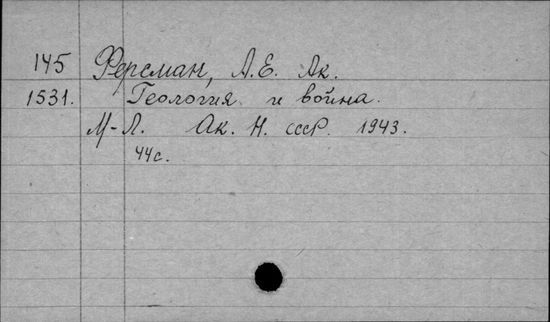 145 Ферсман, А.Е. Ак.
1531. Геология и война.
М-Л. Ак. Н. СССР. 1943.
44с.